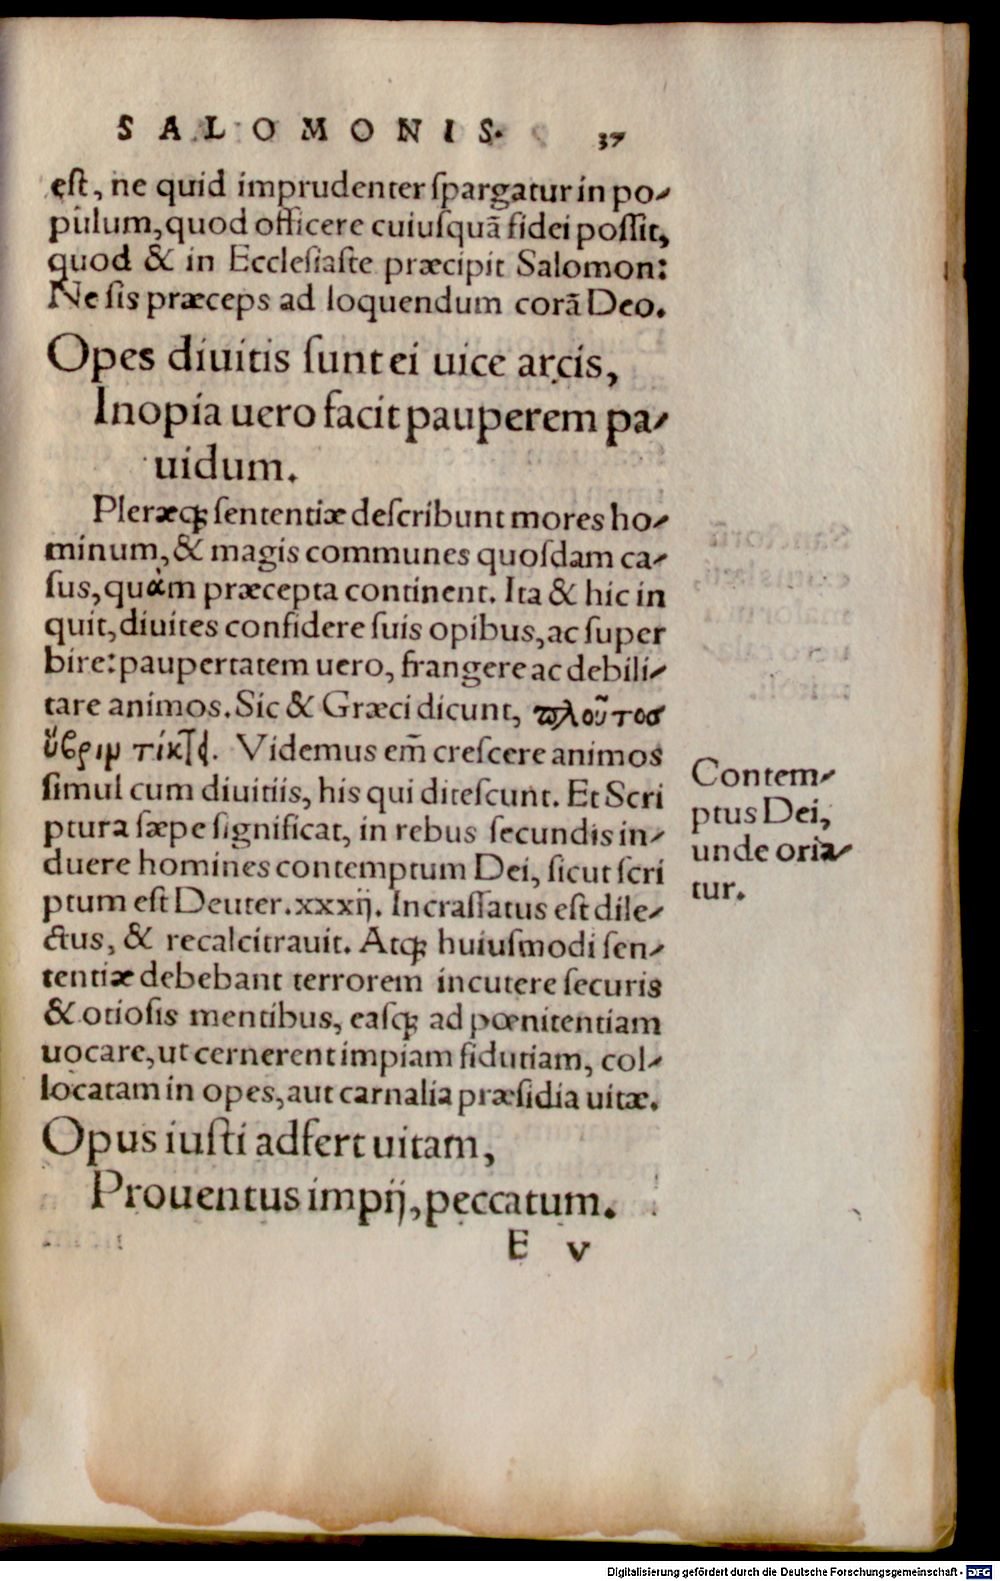 SALOMONIS. 37
est, ne quid imprudenter spargatur in po-
pulum, quod officere cuiusquã fidei possit,
quod & in Ecclesiaste præcipit Salomon:
Ne sis præceps ad loquendum corã Deo.
Opes diuitis sunt ei uice arcis,
Inopia uero facit pauperem pa-
uidum.
Pleræq; sententiæ describunt mores ho-
minum, & magis communes quosdam ca-
sus, quàm præcepta continent. Ita & hic in
quit, diuites confidere suis opibus, ac super
bire: paupertatem uero, frangere ac debili-
tare animos. Sic & Græci dicunt, πλοῦτοσ
ὕβριμ τίκτει. Videmus em̃ crescere animos
simul cum diuitiis, his qui ditescunt. Et Scri
ptura sæpe significat, in rebus secundis in-
duere homines contemptum Dei, sicut scri
ptum est Deuter. xxxij. Incrassatus est dile-
ctus, & recalcitrauit. Atq; huiusmodi sen-
tentiæ debebant terrorem incutere securis
& otiosis mentibus, easq; ad pœnitentiam
uocare, ut cernerent impiam fidutiam, col-
locatam in opes, aut carnalia præsidia uitæ.
Opus iusti adfert uitam,
Prouentus impij, peccatum.
E v
Contem-
ptus Dei,
unde oria-
tur.
Digitalisierung gefördert durch die Deutsche Forschungsgemeinschaft - DFG